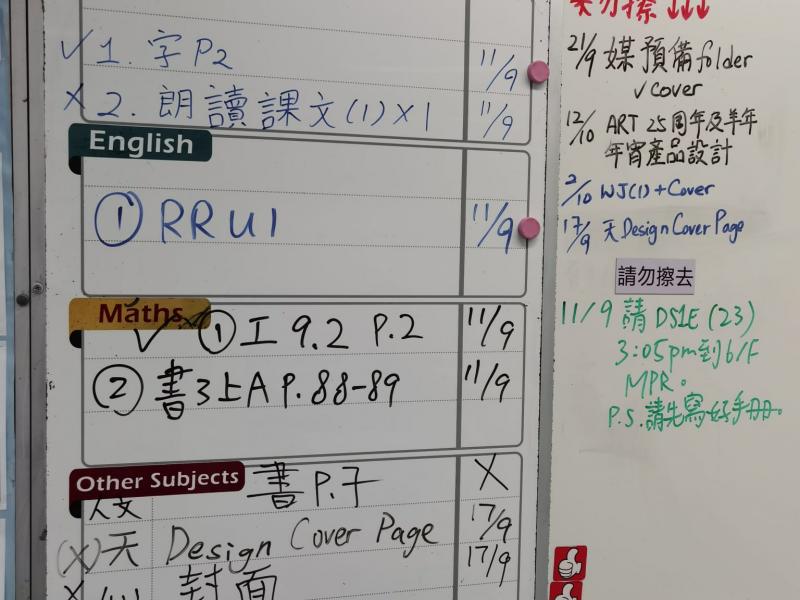 ✓ 1. 字 P2 11/9
X 2. 朗讀課文(1)×1 11/9
English
① RR U1 11/9
Maths
✓ ① 工 9.2 P.2 11/9
② 書3上A P.88-89 11/9
Other Subjects
人文 書 P.7 X
(X) 天 Design Cover Page 17/9
X 封面 17/9
勿擦 ↓↓↓
21/9 媒 預備 folder
✓ cover
12/10 ART 25周年及羊年
年宵產品設計
2/10 WJ(1)+Cover
17/9 天 Design Cover Page
請勿擦去
11/9 請 DS1E (23)
3:05pm到6/F
MPR。
P.S.請先寫好手冊。